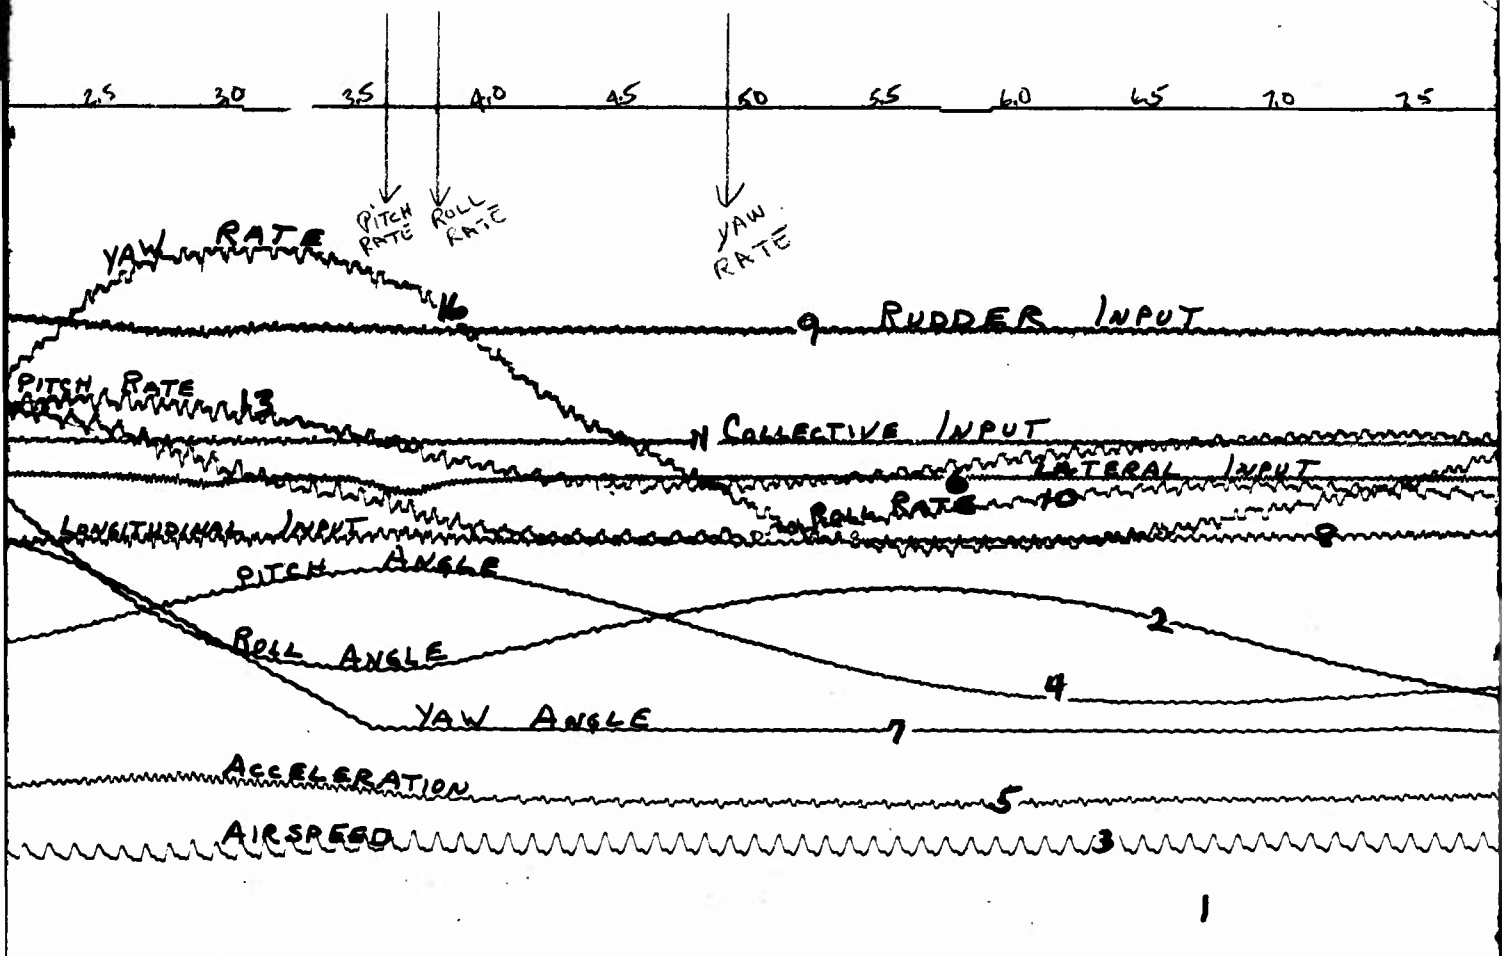 2.5 3.0 3.5 4.0 4.5 5.0 5.5 6.0 6.5 7.0 7.5
PITCH
RATE
ROLL
RATE
YAW
RATE
YAW RATE
16
9 RUDDER INPUT
PITCH RATE
13
11 COLLECTIVE INPUT
6 LATERAL INPUT
ROLL RATE 10
LONGITUDINAL INPUT
8
PITCH ANGLE
2
ROLL ANGLE
4
YAW ANGLE 7
ACCELERATION
5
AIRSPEED 3
1